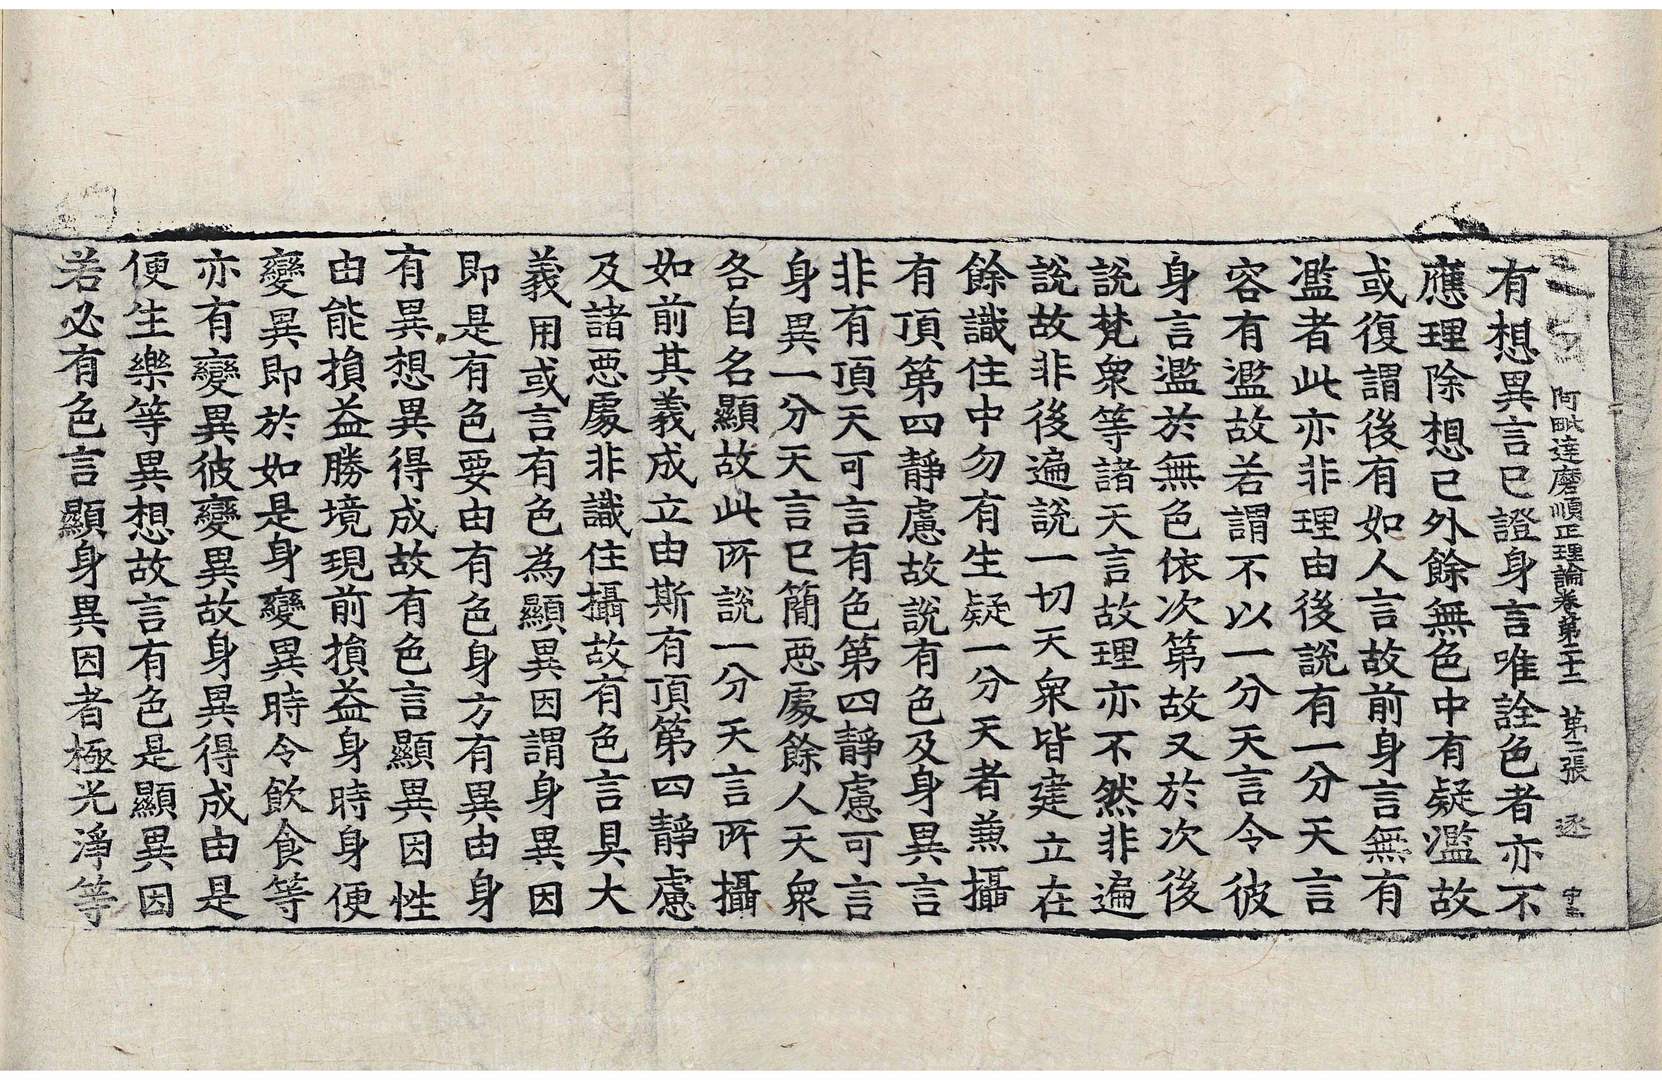 阿毗達磨順正理論卷第二十二　第二張　逐
有想異言已證身言唯詮色者亦不
應理除想已外餘無色中有疑濫故
或復謂後有如人言故前身言無有
濫者此亦非理由後說有一分天言
容有濫故若謂不以一分天言令彼
身言濫於無色依次第故又於次後
說梵衆等諸天言故理亦不然非遍
說故非後遍說一切天衆皆建立在
餘識住中勿有生疑一分天者兼攝
有頂第四靜慮故說有色及身異言
非有頂天可言有色第四靜慮可言
身異一分天言已簡惡處餘人天衆
各自名顯故此所說一分天言所攝
如前其義成立由斯有頂第四靜慮
及諸惡處非識住攝故有色言具大
義用或言有色為顯異因謂身異因
即是有色要由有色身方有異由身
有異想異得成故有色言顯異因性
由能損益勝境現前損益身時身便
變異即於如是身變異時令飲食等
亦有變異彼變異故身異得成由是
便生樂等異想故言有色是顯異因
若必有色言顯身異因者極光淨等